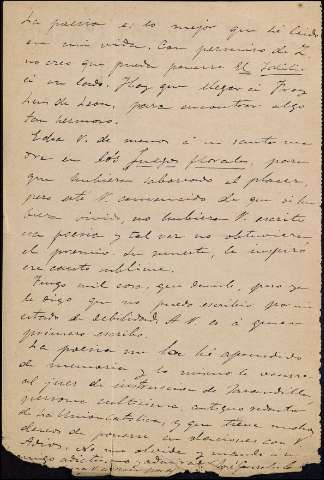 La poesía es lo mejor que he leído
en mi vida. Con permiso de
no creo que pueda ponerse El Idilio
á su lado. Hay que llegar á Fray
Luis de Leon, para encontrar algo
tan hermoso.
Echa V. de menos á su santa ma
dre en los Juegos florales, para
que hubiera saboreado el placer,
pero esté V. convencido de que si hu
biera vivido, no hubiera V. escrito
esa poesía y tal vez no obtuviera
el premio. Su muerte, le inspiró
ese canto sublime.
Tengo mil cosas que decirle, pero ya
le digo que no puedo escribir por mi
estado de debilidad. A V. es á quien
primero escribo.
La poesía me la he aprendido
de memoria y lo mismo le ocurre
al juez de instrucción de Jarandilla,
persona cultísima, antiguo redactor
de La Union Católica, y que tiene muchos
deseos de ponerse en relaciones con V.
Adios. No me olvide y mande á su
amigo